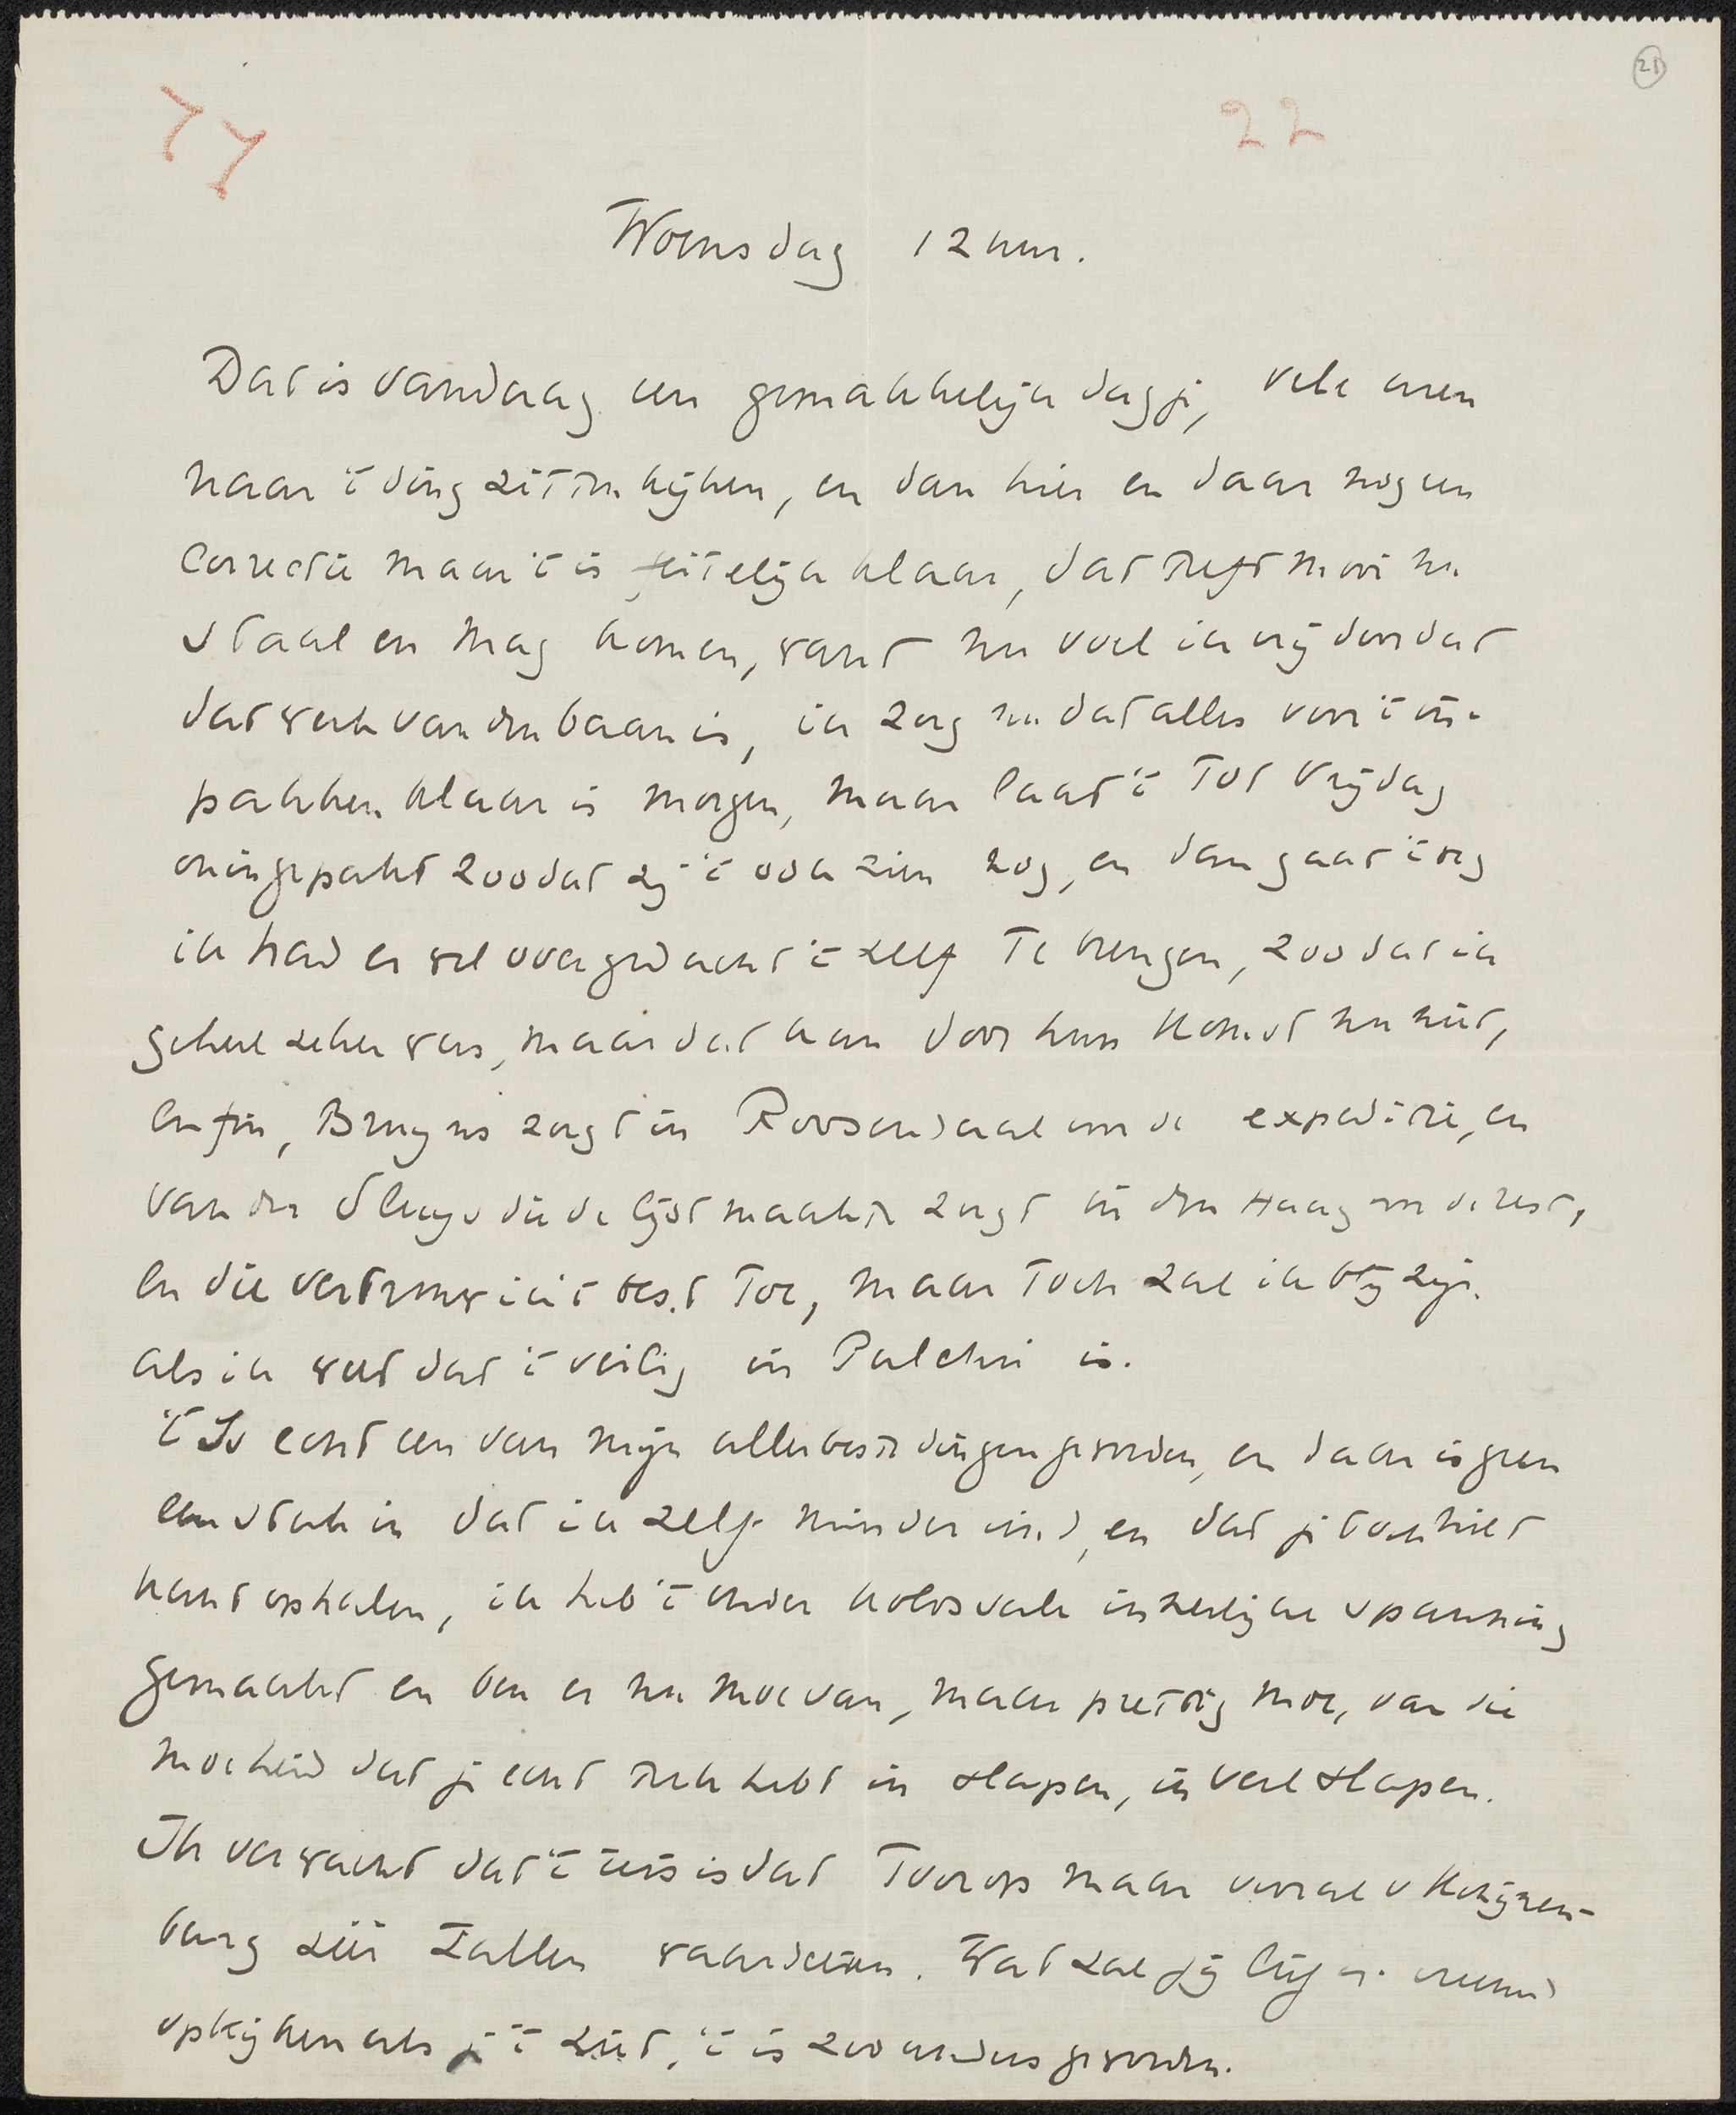 21
77
22
Woensdag 12 uur.
Dat is vandaag een gemakkelijk dagje, vele uren
naar 't ding zitten kijken, en dan hier en daar nog een
correctie maar 't is feitelijk klaar, dat treft mooi nu
Staal en Mag komen, want nu voel ik vrij doordat
dat werk van den baan is, ik zorg nu dat alles voor 't in-
pakken klaar is morgen, maar laat 't tot Vrijdag
oningepakt zoodat zij 't ook zien nog, en dan gaat 't weg
ik had er wel over gedacht 't zelf te brengen, zoodat ik
geheel zeker was, maar dat kan door hun komst nu niet,
enfin, Bruyns zorgt in Roosendaal om de expeditie, en
van der Sluys die de lijst maakte zorgt in den Haag om de rest,
en die vertrouw ik 't best toe, maar toch zal ik blij zijn
als ik weet dat 't veilig in Pulchri is.
't Is echt een van mijn allerbeste dingen geworden, en daar is geen
een stuk in dat ik zelf minder vind, en dat je toch niet
kunt ophalen, ik heb 't onder kolossale innerlijke spanning
gemaakt en ben er nu moe van, maar prettig moe, van die
moeheid dat je echt trek hebt in slapen, in veel slapen.
Ik verwacht dat 't iets is dat Toorop maar vooral v Konijnen-
burg zeer zullen waardeeren. Wat zal jij lief er vreemd
opkijken als je 't ziet, 't is zoo anders geworden.